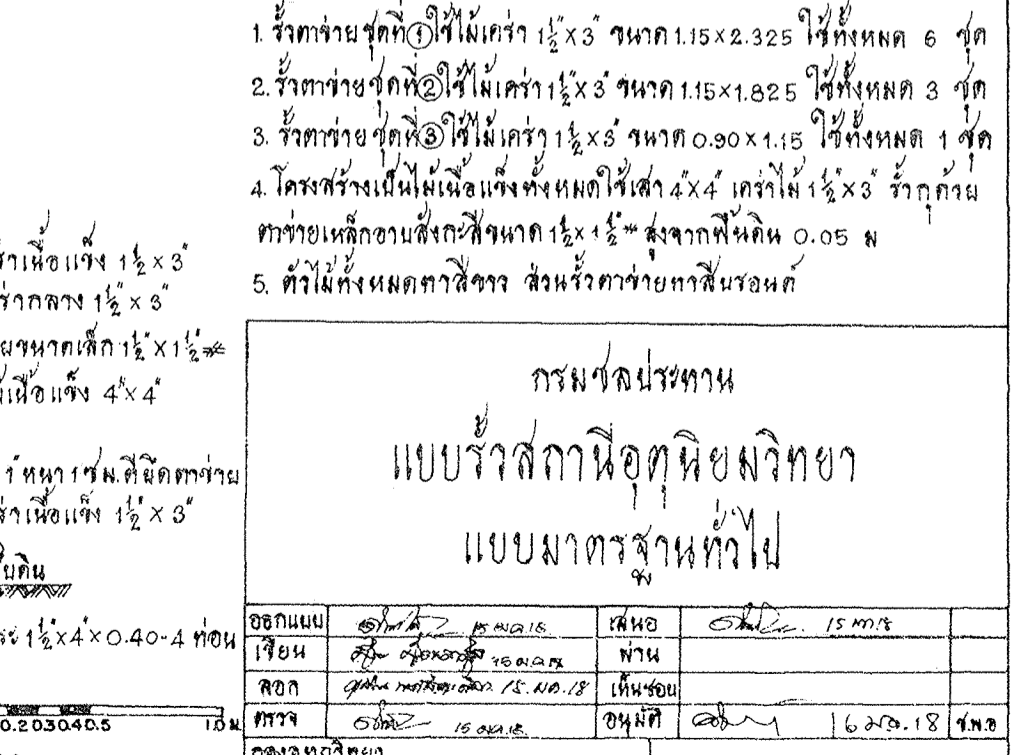 1. รั้วตาข่ายชุดที่ ① ใช้ไม้เคร่า 1½"×3" ขนาด 1.15×2.325 ใช้ทั้งหมด 6 ชุด
2. รั้วตาข่ายชุดที่ ② ใช้ไม้เคร่า 1½"×3" ขนาด 1.15×1.825 ใช้ทั้งหมด 3 ชุด
3. รั้วตาข่ายชุดที่ ③ ใช้ไม้เคร่า 1½"×3" ขนาด 0.90×1.15 ใช้ทั้งหมด 1 ชุด
4. โครงสร้างเป็นไม้เนื้อแข็งทั้งหมดใช้เสา 4"×4" เคร่าไม้ 1½"×3" รั้วกุด้วย
ตาข่ายเหล็กอาบสังกะสีขนาด 1½"×1½" สูงจากพื้นดิน 0.05 ม
5. ตัวไม้ทั้งหมดทาสีขาว ส่วนรั้วตาข่ายทาสีบรอนด์
ร่าเนื้อแข็ง 1½"×3"
ร่ากลาง 1½"×3"
ยขนาดเล็ก 1½"×1½"
เนื้อแข็ง 4"×4"
1" หนา 1 ซม. ตียึดตาข่าย
ร่าเนื้อแข็ง 1½"×3"
บดิน
1½"×4"×0.40-4 ท่อน
0.2 0.3 0.4 0.5 1.0 ม
กรมชลประทาน
แบบรั้วสถานีอุตุนิยมวิทยา
แบบมาตรฐานทั่วไป
ออกแบบ 15 มค.18 เสนอ 15 มค.18
เขียน 15 ม.ค. 18 ผ่าน
ลอก 15. มค. 18 เห็นชอบ
ตรวจ 15 มค.18 อนุมัติ 16 มค. 18 ช.พ.อ